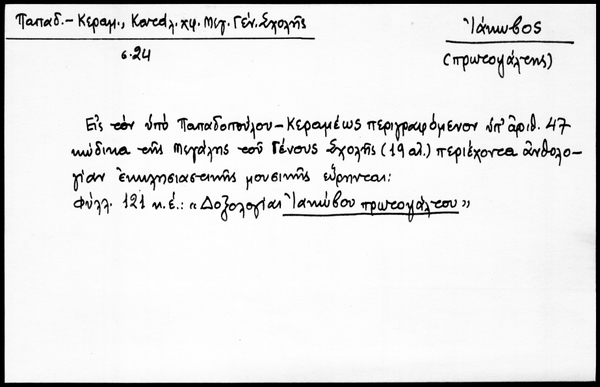 Παπαδ.-Κεραμ., Καταλ. χφ. Μεγ. Γέν. Σχολῆς
σ. 24
Ἰάκωβος
(πρωτοψάλτης)
Εἰς τὸν ὑπὸ Παπαδοπούλου-Κεραμέως περιγραφόμενον ὑπ' ἀριθ. 47
κώδικα τῆς Μεγάλης τοῦ Γένους Σχολῆς (19 αἰ.) περιέχοντα ἀνθολο-
γίαν ἐκκλησιαστικῆς μουσικῆς εὕρηνται:
Φύλλ. 121 κ.ἑ.: «Δοξολογίαι Ἰακώβου πρωτοψάλτου»